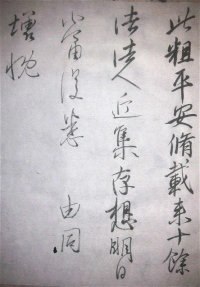 此粗平安脩載来十餘
人近集存想明日
當復悉 由同
增慨